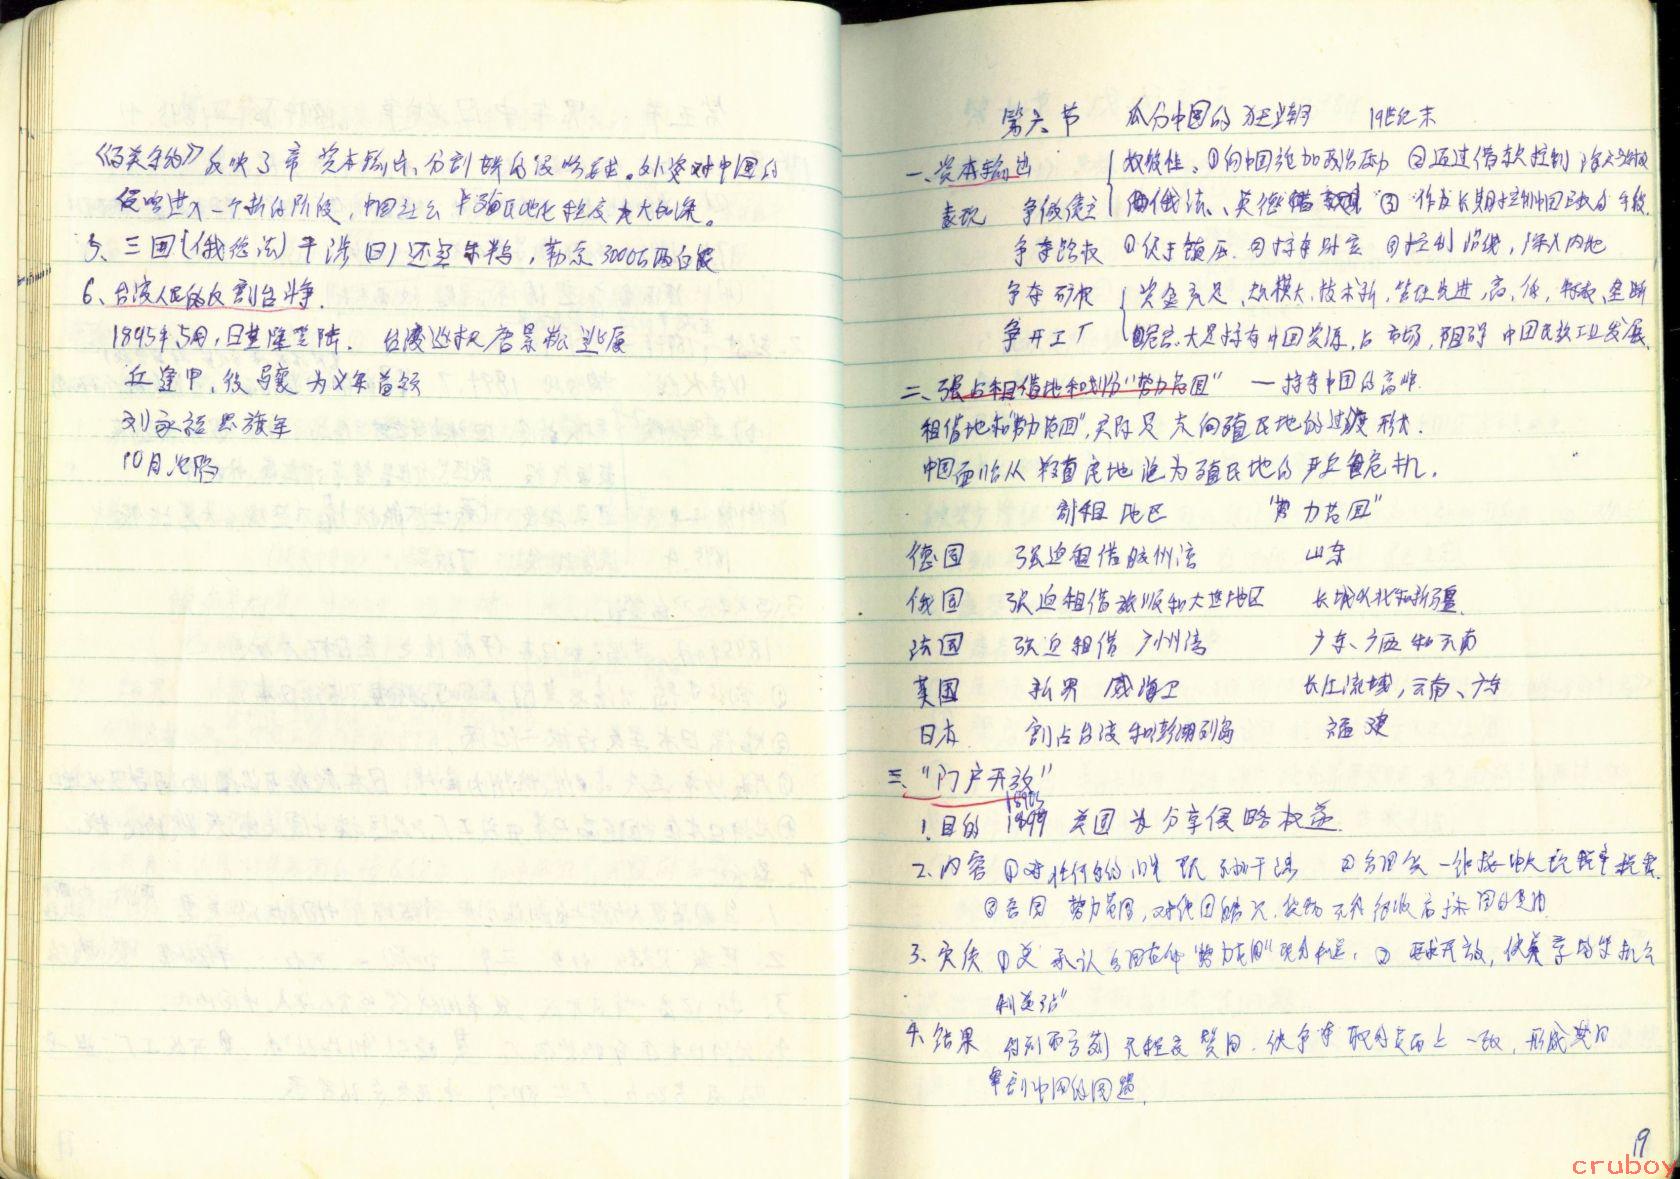 《马关条约》反映了帝 资本输出、分割世界的侵略要求。外资对中国的
侵略进入一个新的阶段，中国社会半殖民地化程度大大加深。
5、三国（俄德法）干涉 日）还辽东半岛，勒索3000万两白银
6、台湾人民的反割台斗争.
1895年5月，日基隆登陆. 台湾巡抚唐景崧逃厦
丘逢甲，徐骧为义军首领
刘永福黑旗军
10月沦陷
第六节 瓜分中国的狂潮 19世纪末
一、资本输出 政治性：①向中国施加政治压力 ②通过借款控制
表现 争做债主 俄法、英德借款 ③作为长期控制中国的手段
争夺路权 ①便于镇压 ②掠夺财富 ③控制沿线，深入内地
争夺矿权 资金充足，规模大，技术新，管理先进，高，低，特权，垄断
争开工厂 大量掠夺中国资源，占市场，阻碍中国民族工业发展
二、强占租借地和划分“势力范围” —掠夺中国的高峰
租借地和“势力范围”，实际是走向殖民地的过渡形式.
中国面临从半殖民地沦为殖民地的严重危机.
割租地区 “势力范围”
德国 强迫租借胶州湾 山东
俄国 强迫租借旅顺和大连地区 长城以北和新疆
法国 强迫租借广州湾 广东、广西和云南
英国 新界 威海卫 长江流域，云南、广东
日本 割占台湾和澎湖列岛 福建
三、“门户开放”
1.目的 1899 美国为分享侵略权益.
2.内容 ①对任何 不加干涉 ②各国货一律按中国现税率
③各国势力范围，对他国船只、货物不
3.实质 ①美承认各国在华“势力范围” ②要求开放，使美享均等机会
利益
4.结果 得到西方列 不程度赞同. 使 一致，形成
中国的同盟.
19
cruboy